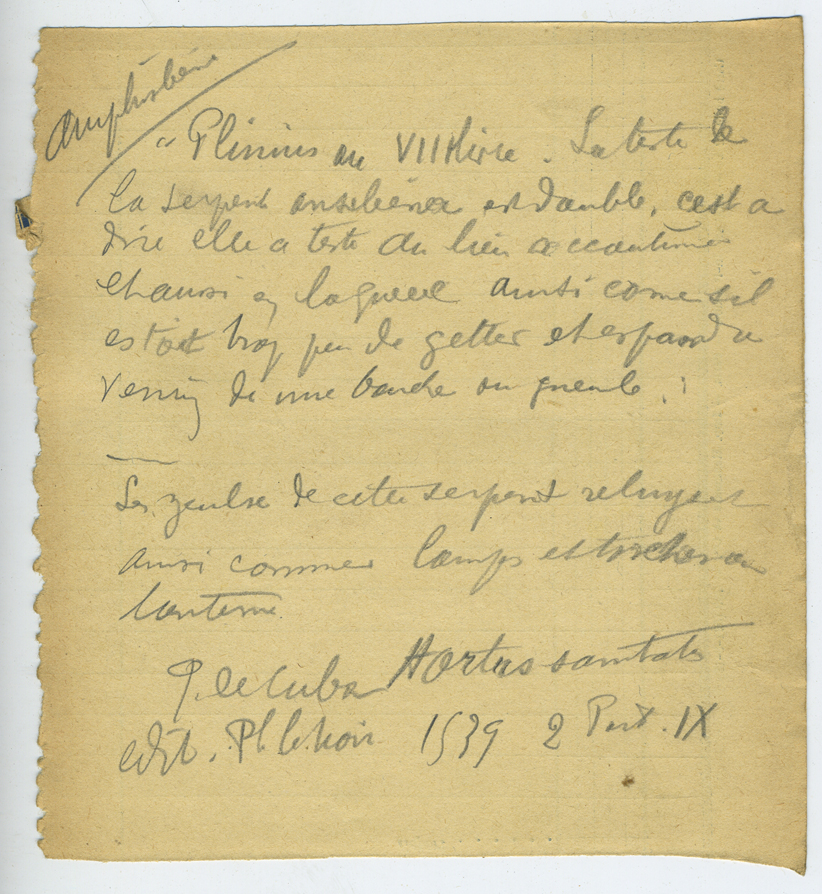 Amphisbène
"Plinius au VII livre. La teste de
la serpent ansibena est double, c'est a
dire elle a teste au lieu accoutumé
et aussi en la queue ainsi come sil
estoit trop peu de getter et espandre
venin de une bouche ou gueule.
Les yeulx de cette serpent reluysent
ainsi comme lampe et torches ou
lanterne
J. de Cuba Hortus sanitatis
edit. Ph. le Noir 1539 2 Part. IX